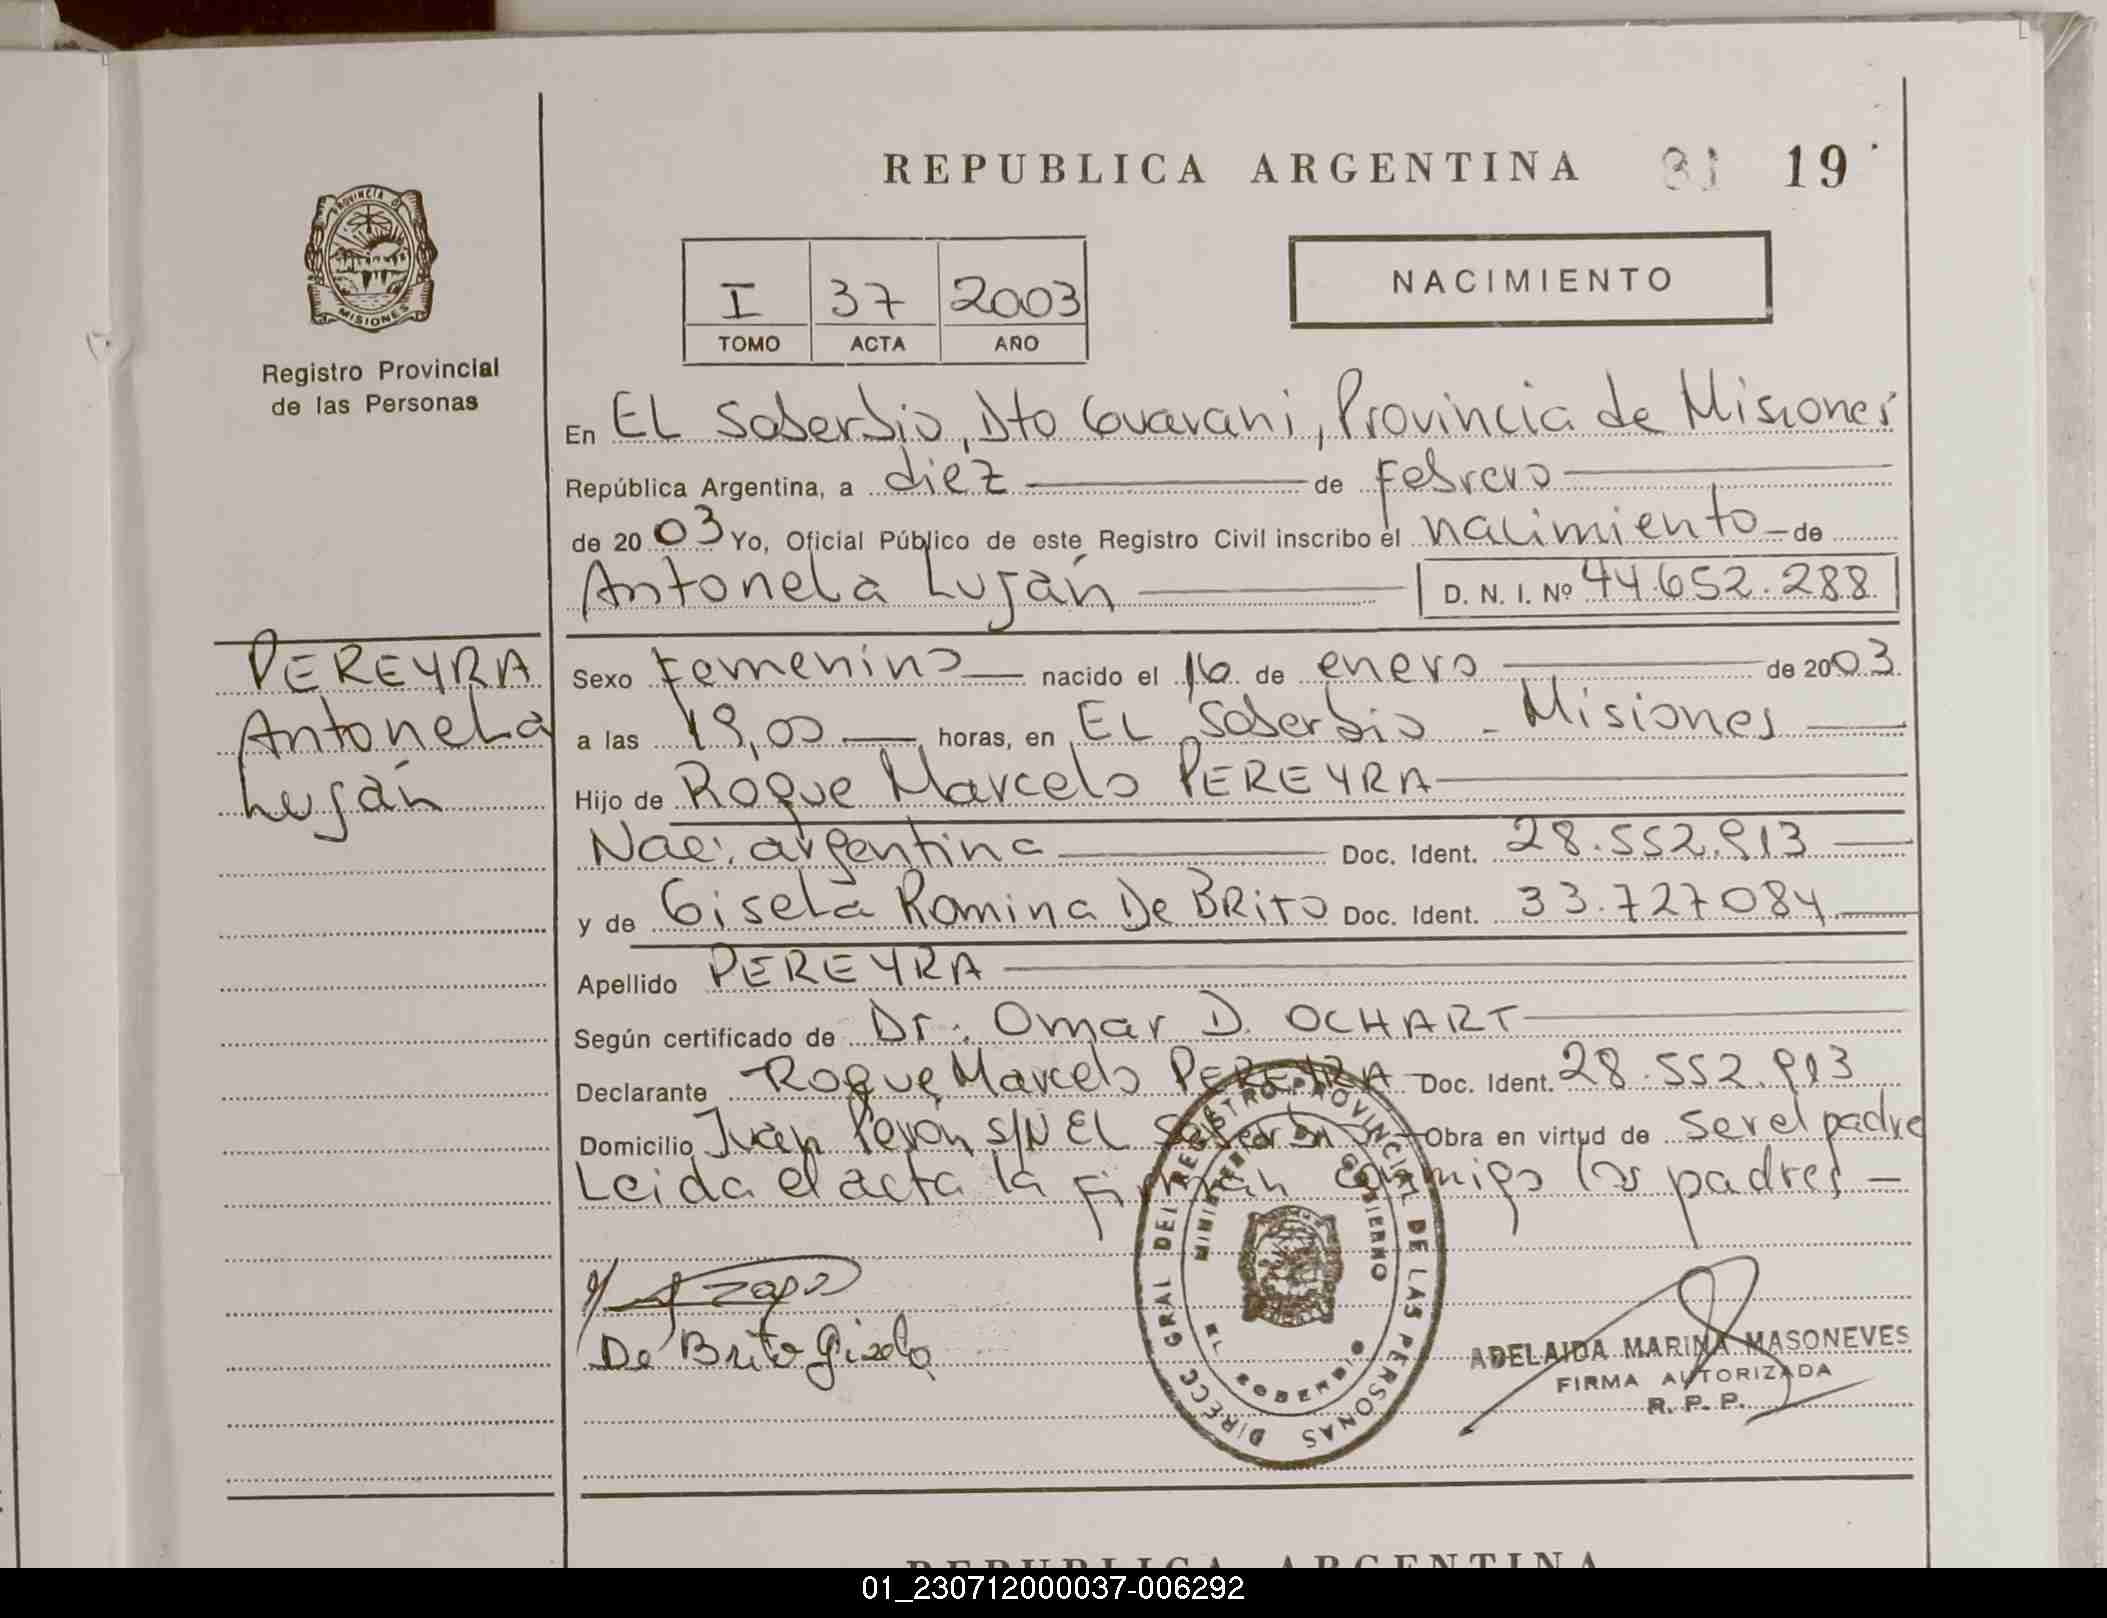 REPUBLICA ARGENTINA 31 19
PROVINCIA DE
MISIONES
Registro Provincial
de las Personas
I 37 2003
TOMO ACTA AÑO
NACIMIENTO
En EL Soberbio, Dto Guarani, Provincia de Misiones
República Argentina, a diez de Febrero
de 2003 Yo, Oficial Público de este Registro Civil inscribo el nacimiento de
Antonela Luján D. N. I. Nº 44.652.288
PEREYRA
Antonela
Luján
Sexo Femenino nacido el 16 de enero de 2003
a las 19,00 horas, en EL Soberbio - Misiones
Hijo de Roque Marcelo PEREYRA
Nac: argentina Doc. Ident. 28.552.913
y de Gisela Romina De BRITO Doc. Ident. 33.727084
Apellido PEREYRA
Según certificado de Dr. Omar D. OCHART
Declarante Roque Marcelo PEREYRA Doc. Ident. 28.552.913
Domicilio Juan Perón S/N EL Soberbio Obra en virtud de ser el padre
Leida el acta la Firman conmigo los padres
De Brito Gisela
DIRECC GRAL DEL REGISTRO PROVINCIAL DE LAS PERSONAS
MINISTERIO GOBIERNO
EL SOBERBIO
ADELAIDA MARINA MASONEVES
FIRMA AUTORIZADA
R. P. P.
REPUBLICA ARGENTINA
01_230712000037-006292